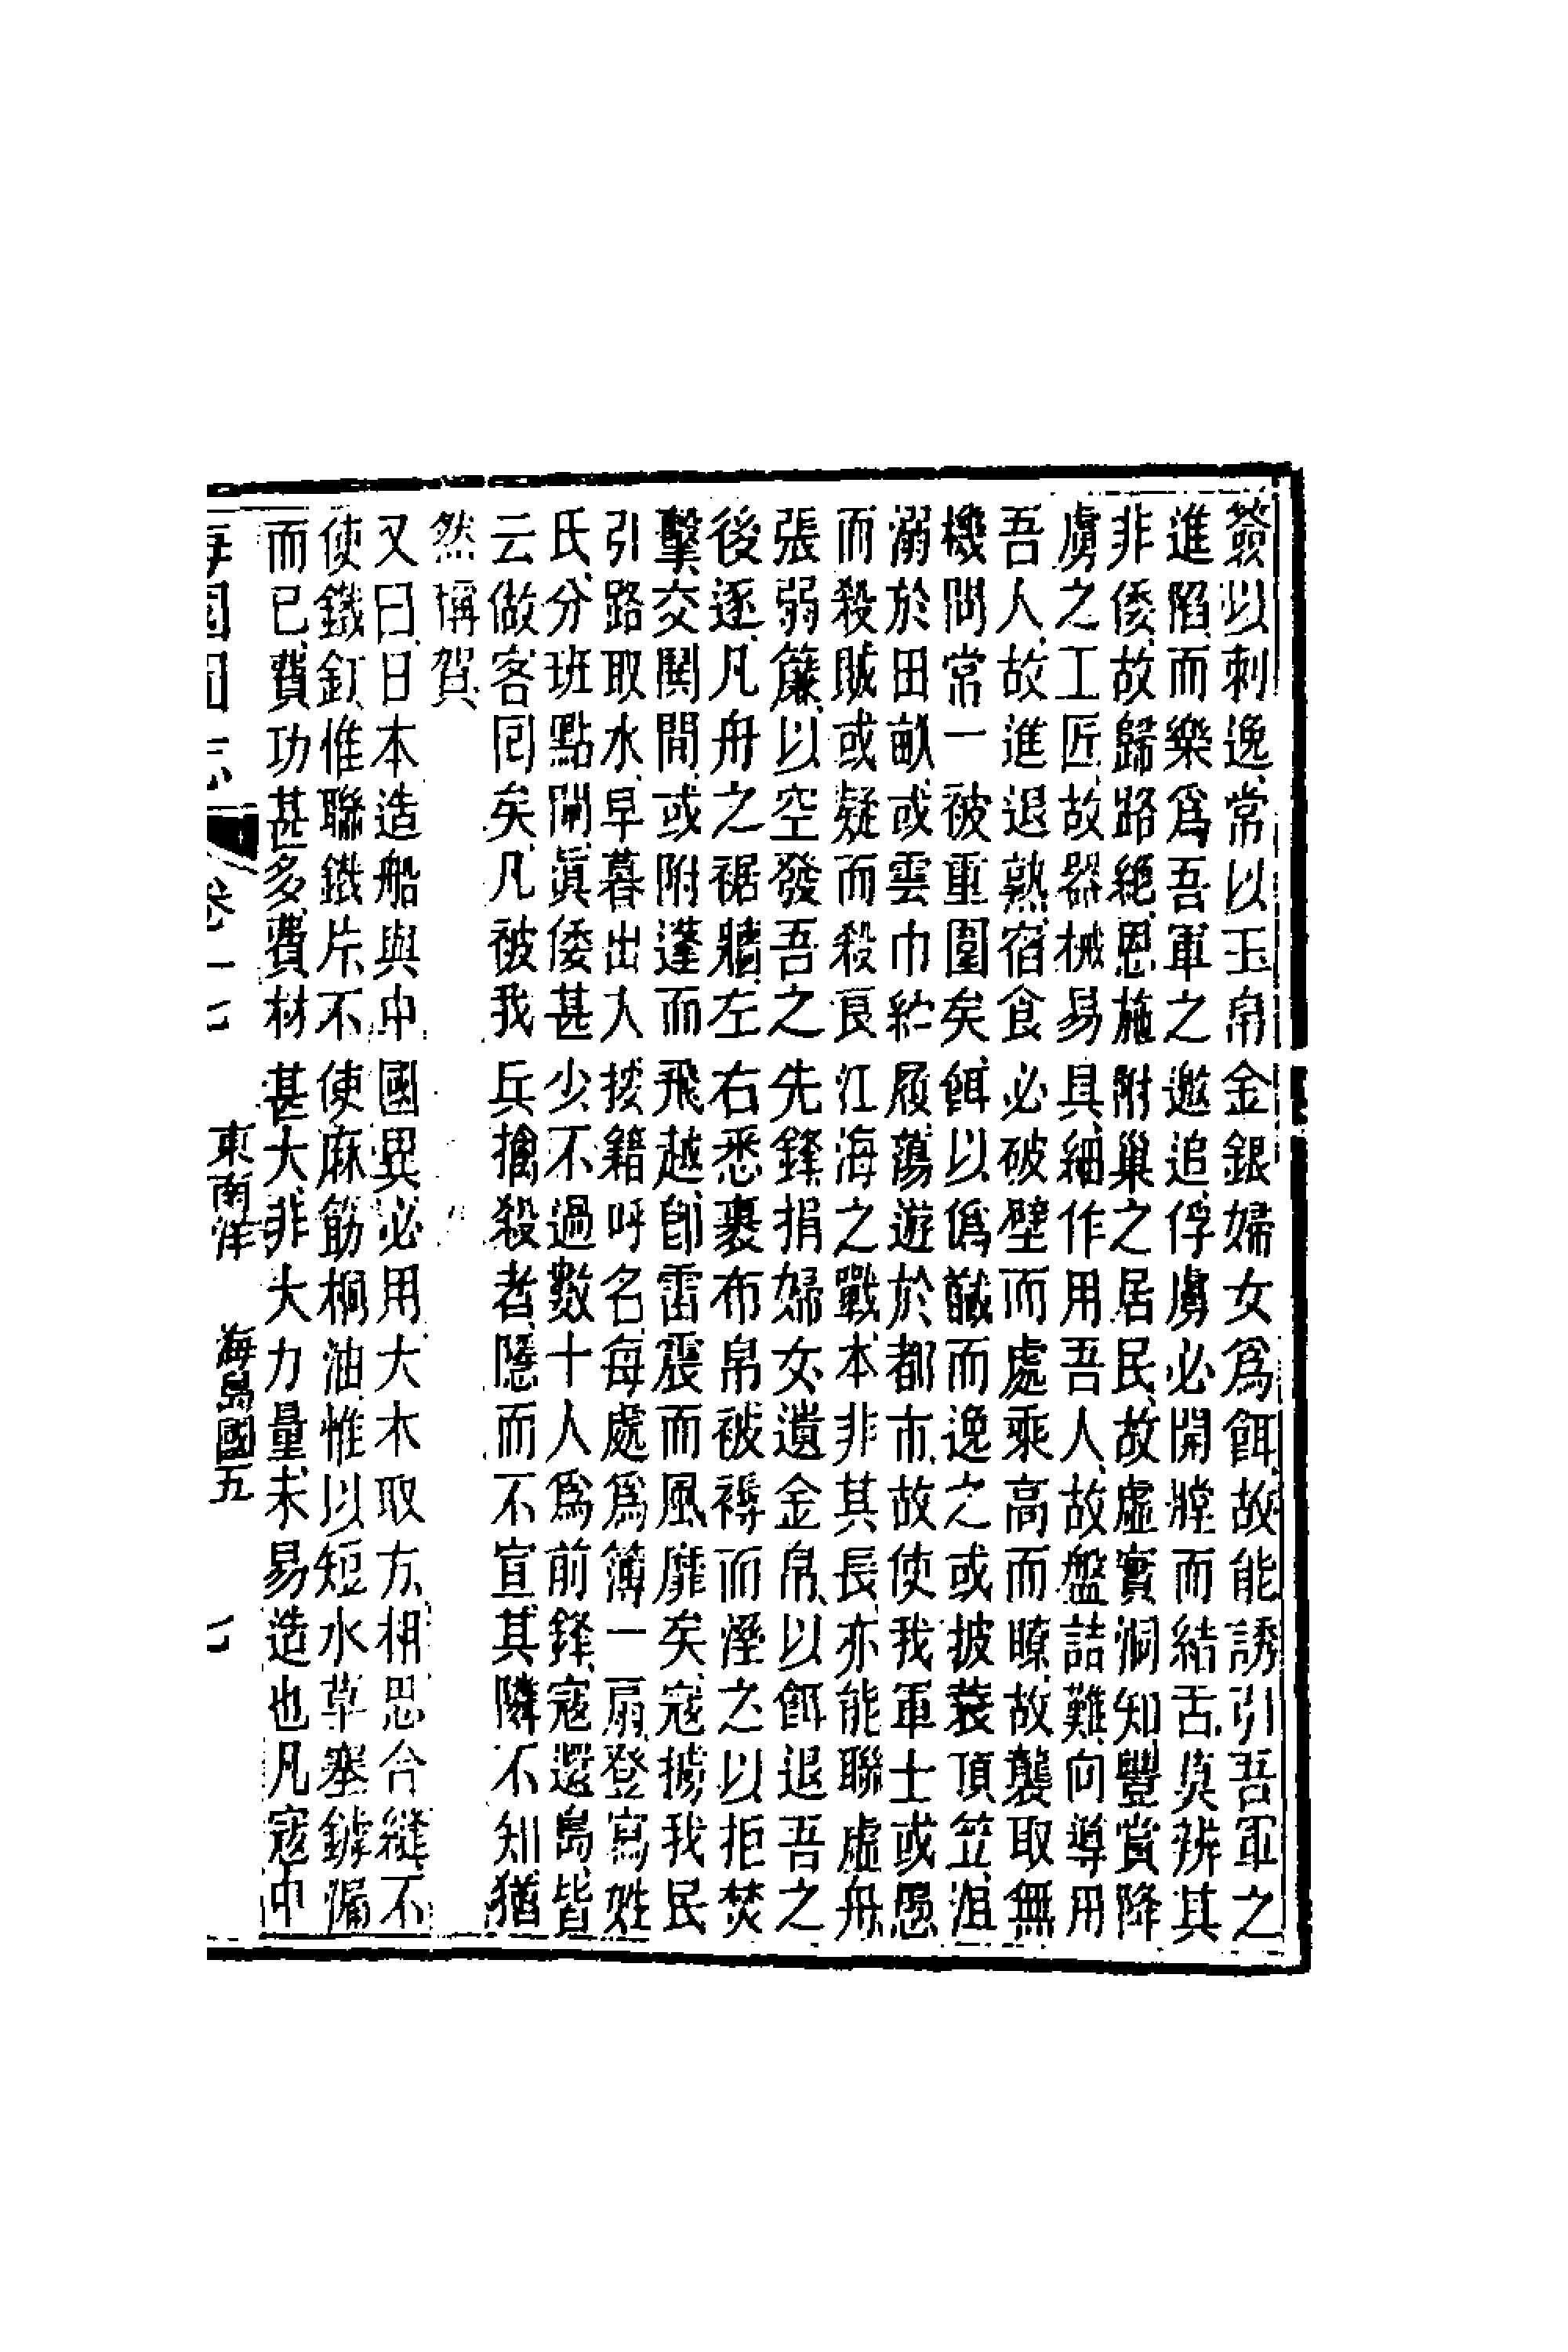 簽以刺逸常以玉帛金銀婦女爲餌故能誘引吾軍之
進陷而樂爲吾軍之邀追俘虜必開膛而結舌莫辨其
非倭故歸路絕恩施附巢之居民故虛實洞知豐賞降
虜之工匠故器械易具細作用吾人故盤詰難向導用
吾人故進退熟宿食必破壁而處乘高而瞭故襲取無
機間常一被重圍矣餌以僞馘而逸之或披蓑頂笠沮
溺於田畝或雲巾紵履蕩遊於都市故使我軍士或愚
而殺賊或疑而殺良江海之戰本非其長亦能聯虛舟
張弱簾以空發吾之先鋒捐婦女遺金帛以餌退吾之
後逐凡舟之裾牆左右悉裹布帛被褥而溼之以拒焚
擊交鬨間或附蓬而飛越卽雷震而風靡矣寇擄我民
引路取水早暮出入按籍呼名每處爲簿一扇登寫姓
氏分班點閘眞倭甚少不過數十人爲前鋒寇還島皆
云做客回矣凡被我兵擒殺者隱而不宣其隣不知猶
然稱賀
又曰日本造船與中國異必用大木取方相思合縫不
使鐵釘惟聯鐵片不使麻筋桐油惟以短水草塞罅漏
而已費功甚多費材甚大非大力量未易造也凡寇中
海國圖志 卷十七 東南洋 海島國五 七